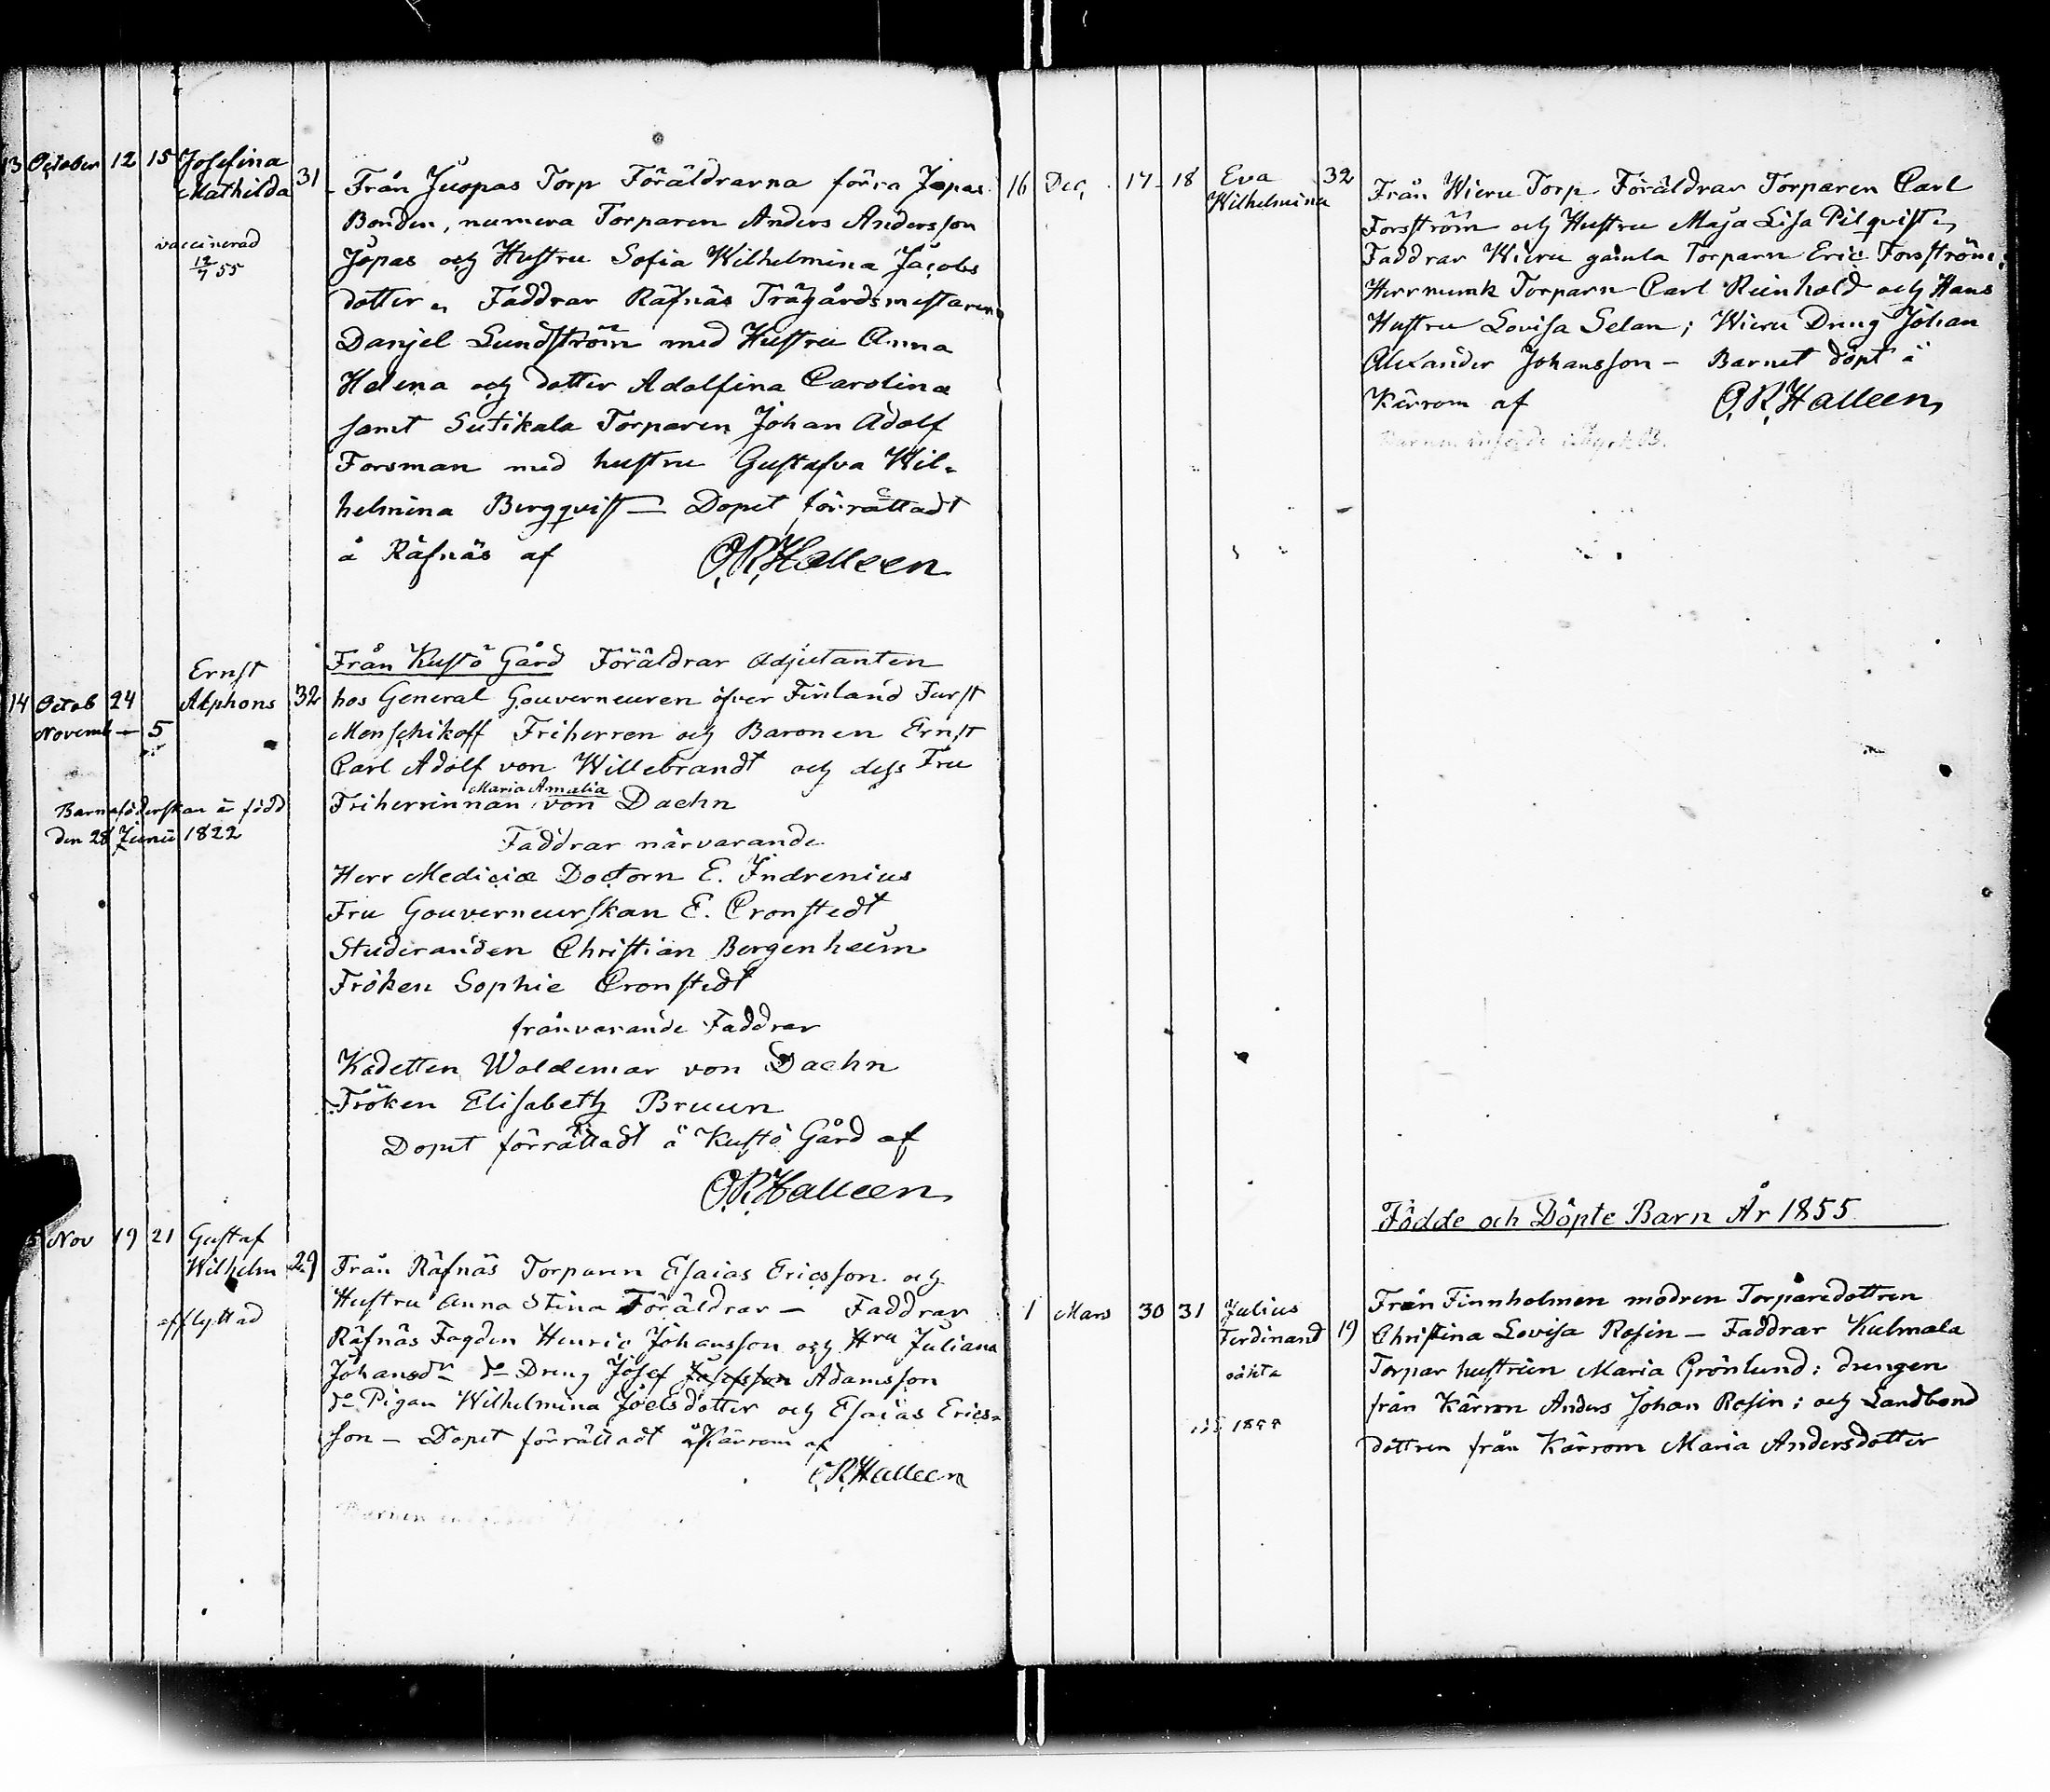 13 October 12 15 Josefina Mathilda 31
vaccinerad
12/7 55
Från Juopas Torp Föräldrarna förra Jopas
Bonden, numera Torparen Anders Andersson
Jopas och Hustru Sofia Wilhelmina Jacobs
dotter. Faddrar Räfnäs Trägårdsmestaren
Danjel Lundström med Hustru Anna
Helena och dotter Adolfina Carolina
samt Sutikala Torparen Johan Adolf
Forsman med hustru Gustafva Wil-
helmina Bergqvist — Dopet förrättadt
å Räfnäs af O.R.Halleen
Ernst
14 Octob 24 Alphons 32
Novemb — 5
Barnaföderskan är född
den 28 Junii 1822
Från Kustö Gård Föräldrar Adjutanten
hos General Gouverneuren öfver Finland Furst
Menschikoff Friherren och Baronen Ernst
Carl Adolf von Willebrandt och dess Fru
Maria Amalia
Friherrinnan von Daehn
Faddrar närvarande
Herr Mediciæ Doctorn E. Indrenius
Fru Gouverneurskan E. Cronstedt
Studeranden Christian Bergenheim
Fröken Sophie Cronstedt
frånvarande Faddrar
Kadetten Woldemar von Daehn
Fröken Elisabeth Bruun
Dopet förrättadt å Kustö Gård af
O.R.Halleen
5 Nov 19 21 Gustaf
Wilhelm 29
afflyttad
Från Räfnäs Torparen Esaias Ericsson och
Hustru Anna Stina Föräldrar — Faddrar
Räfnäs Fogden Henric Johansson och Hru Juliana
Johansdr do Dreng Josef Josefsson Adamsson
do Pigan Wilhelmina Joelsdotter och Esaias Erics-
son — Dopet förrättadt å Kärrom af
O.R.Halleen
16 Dec. 17 18 Eva 32
Wilhelmina
Från Wieru Torp Föräldrar Torparen Carl
Forsström och Hustru Maja Lisa Pilqvist
Faddrar Wieru gamla Torparn Eric Forsström;
Herrmunk Torparn Carl Reinhold och Hans
Hustru Lovisa Selan; Wieru Dreng Johan
Alexander Johansson — Barnet döpt å
Kärrom af O.R.Halleen
Födde och Döpte Barn År 1855
1 Mars 30 31 Julius
Ferdinand 19
oäkta
Från Finnholmen modren Torparedottren
Christina Lovisa Rosin — Faddrar Kulmala
Torpar hustrun Maria Grönlund; drengen
från Kärrom Anders Johan Rosin; och Landbond
dottren från Kärrom Maria Andersdotter